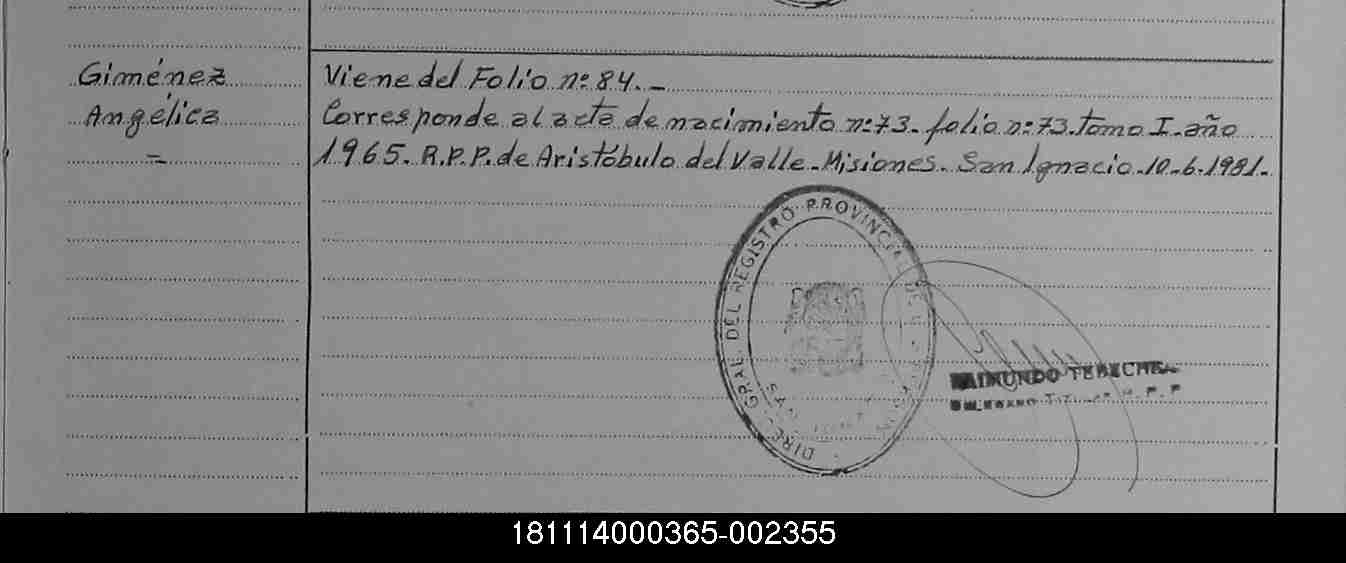 Giménez
Angélica
=
Viene del Folio nº 84. _
Corresponde al acta de nacimiento nº 73. folio nº 73. tomo I. año
1965. R.P.P. de Aristóbulo del Valle. Misiones. San Ignacio. 10-6-1981.
DIRE. GRAL. DEL REGISTRO PROVINCIAL DE
RAIMUNDO
181114000365-002355